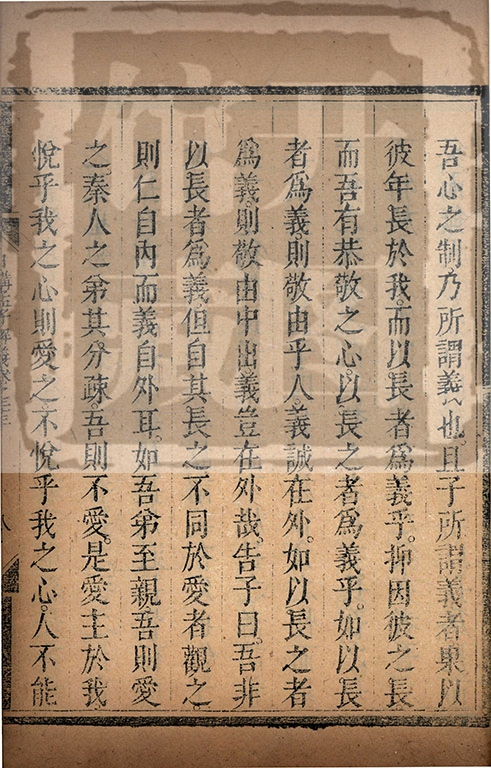 吾心之制。乃所謂義也。且子所謂義者。果以
彼年長於我。而以長者爲義乎。抑因彼之長
而吾有恭敬之心。以長之者爲義乎。如以長
者爲義。則敬由乎人。義誠在外。如以長之者
爲義。則敬由中出。義豈在外哉。告子曰。吾非
以長者爲義。但自其長之不同於愛者觀之。
則仁自內而義自外耳。如吾弟至親。吾則愛
之。秦人之弟。其分疎。吾則不愛。是愛主於我。
悅乎我之心則愛之。不悅乎我之心。人不能